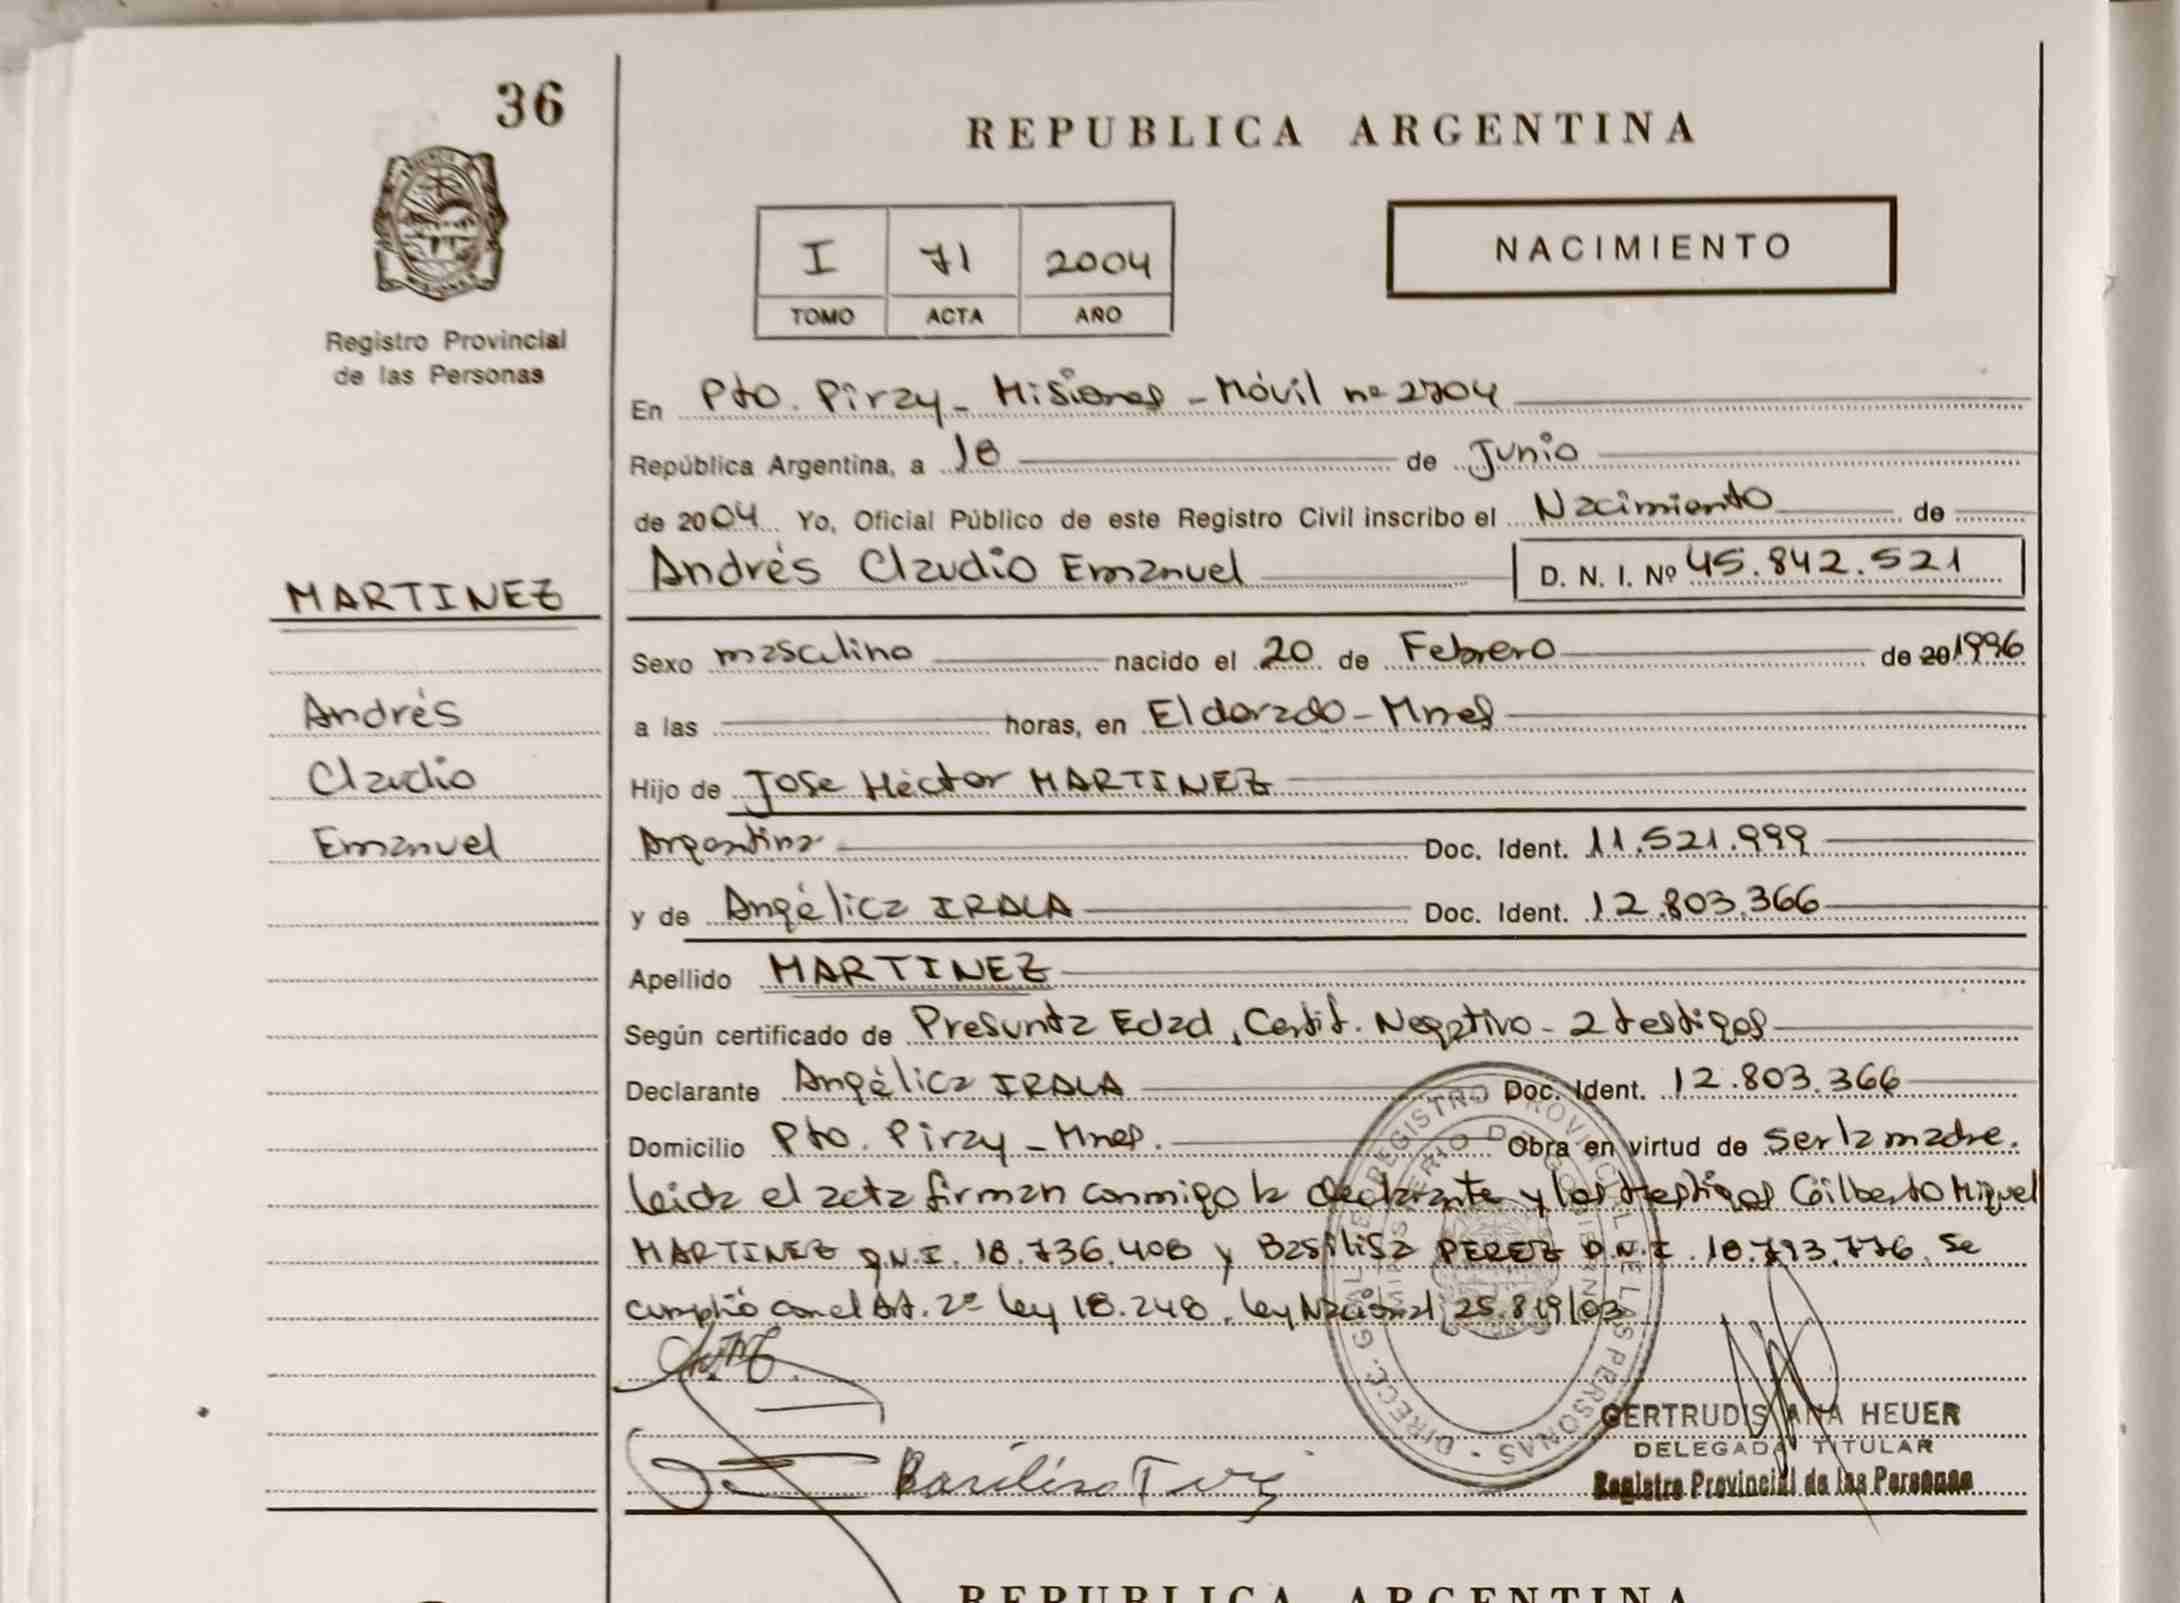 36
REPUBLICA ARGENTINA
I 71 2004
TOMO ACTA AÑO
NACIMIENTO
Registro Provincial
de las Personas
En Pto. Piray - Misiones - Móvil nº 2704
República Argentina, a 18 de Junio
de 2004 Yo, Oficial Público de este Registro Civil inscribo el Nacimiento de
Andrés Claudio Emanuel D. N. I. Nº 45.842.521
MARTINEZ
Sexo masculino nacido el 20 de Febrero de 20 1996
Andrés
a las horas, en Eldorado - Mnes
Claudio
Hijo de Jose Héctor MARTINEZ
Emanuel
Argentina Doc. Ident. 11.521.999
y de Angélica IRALA Doc. Ident. 12.803.366
Apellido MARTINEZ
Según certificado de Presunta Edad, Certif. Negativo - 2 testigos
Declarante Angélica IRALA Doc. Ident. 12.803.366
Domicilio Pto. Piray - Mnes. Obra en virtud de ser la madre.
leida el acta firman conmigo la declarante y los testigos Gilberto Miguel
MARTINEZ D.N.I. 18.736.408 y Basilisa PEREZ D.N.I. 18.793.776. Se
cumplió con el Art. 2º ley 18.248. ley Nacional 25.819/03
DIRECC. GRAL. DE REGISTRO PROVINCIAL DE LAS PERSONAS
MINISTERIO DE GOBIERNO
MISIONES
GERTRUDIS ANA HEUER
DELEGADA TITULAR
Registro Provincial de las Personas
REPUBLICA ARGENTINA